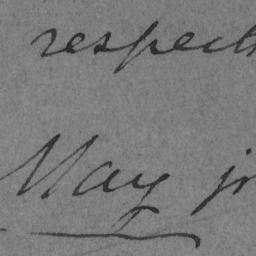 respect
May jr